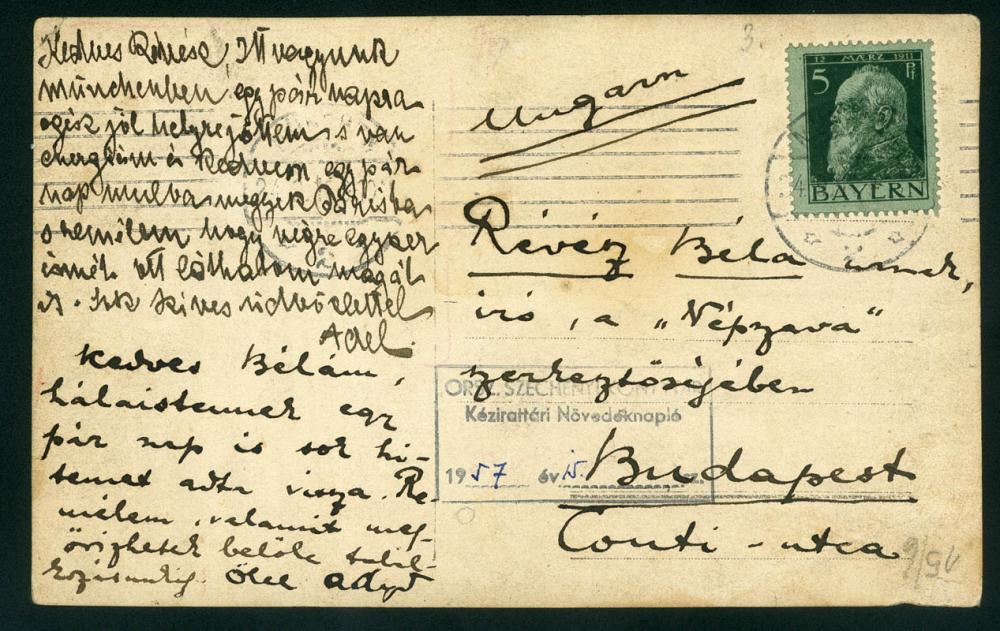 Kedves Révész, Itt vagyunk
münchenben egy pár napra
egész jól helyrejöttem s van
energiám és kedvem egy pár
nap mulva megyek Párisba
s remélem hogy végre egyszer
ismét ott láthatom magát
is. Sok szives üdvözlettel
Adél
Kedves Bélám,
hálaistennek egy
pár nap is sok hi-
temet adta vissza. Re-
mélem, valamit meg-
őrizhetek belőle talál-
kozásunkig. Ölel Adyd
3.
Ungarn
12 MÄRZ 1911
5 Pf
BAYERN
Révész Béla úrnak,
író, a „Népszava"
szerkesztőségében
Budapest
Conti-utca
ORSZ. SZÉCHÉNYI KÖNYVTÁR
Kézirattári Növedéknapló
1957 év 15. sz.